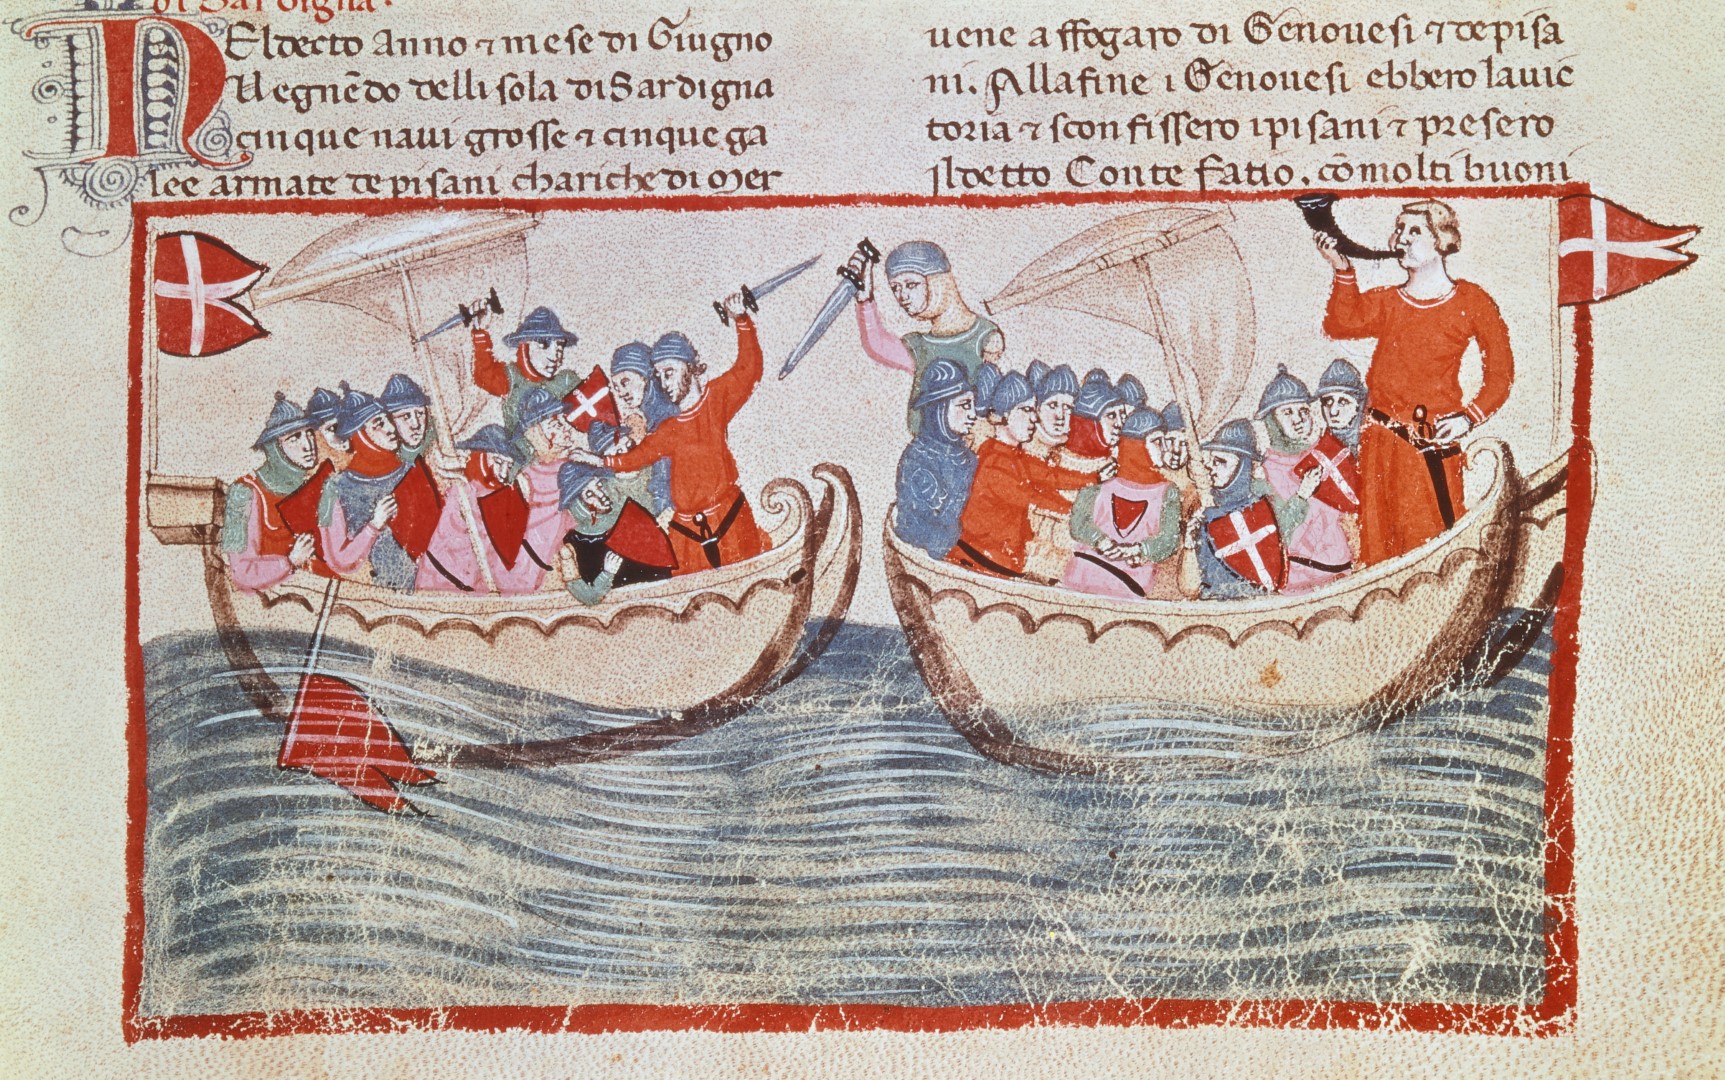 di Sardigna.
NEl decto anno ⁊ mese di Giugno
Uegnēdo dellisola di Sardigna
cinque naui grosse ⁊ cinque ga
lee armate de pisani chariche di mer
uene affogaro di Genouesi ⁊ de pisa
ni. Alla fine i Genouesi ebbero la uic
toria ⁊ sconfissero i pisani ⁊ presero
il detto Conte fatio. cō molti buoni